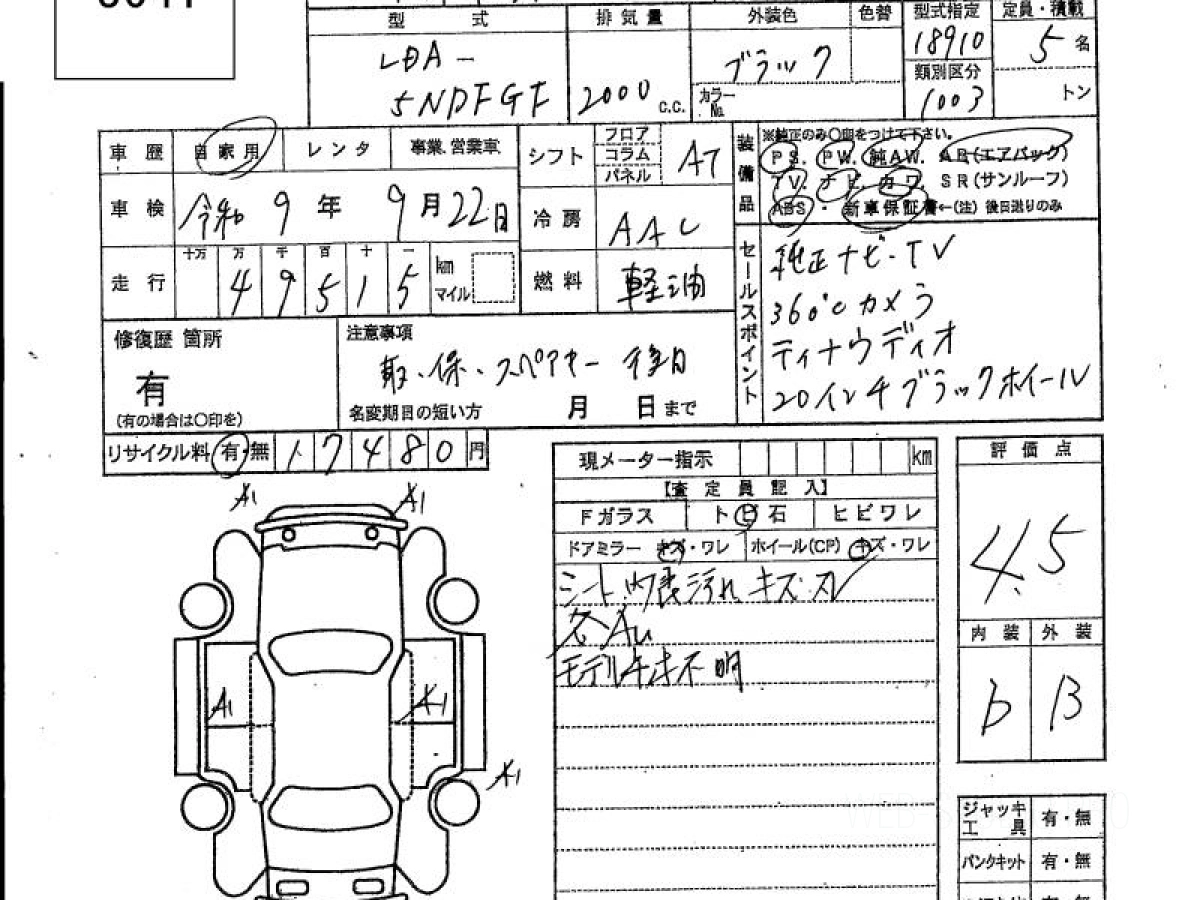 型 式 排気量 外装色 色替 型式指定 定員・積載
LDA-
5NDFGF
2000 c.c.
ブラック
カラーNo.
18910
類別区分
1003
5 名
トン
車歴 自家用 レンタ 事業、営業車
シフト フロア コラム パネル AT
車検 令和 9 年 9 月 22 日
冷房 AAC
走行 十万 万 千 百 十 一
4 9 5 1 5 km マイル
燃料 軽油
装備品
※純正のみ〇印をつけて下さい。
PS. PW. 純AW. AB(エアバック)
TV. ナビ. カワ. SR(サンルーフ)
ABS ・ 新車保証書←(注) 後日送りのみ
セールスポイント
純正ナビ・TV
360°Cカメラ
ティナウディオ
20インチブラックホイール
修復歴 箇所
有
(有の場合は〇印を)
注意事項
取・保・スペアキー 後日
名変期日の短い方 月 日まで
リサイクル料 有・無 17480 円
現メーター指示 km
【査定員記入】
Fガラス ト ビ 石 ヒビワレ
ドアミラー キズ・ワレ ホイール(CP) キズ・ワレ
シート内装汚れ キズ スレ
各AU
モデル年式不明
評価点
4.5
内装 外装
b B
A1 A1
A1 A1
A1
ジャッキ工具 有・無
パンクキット 有・無